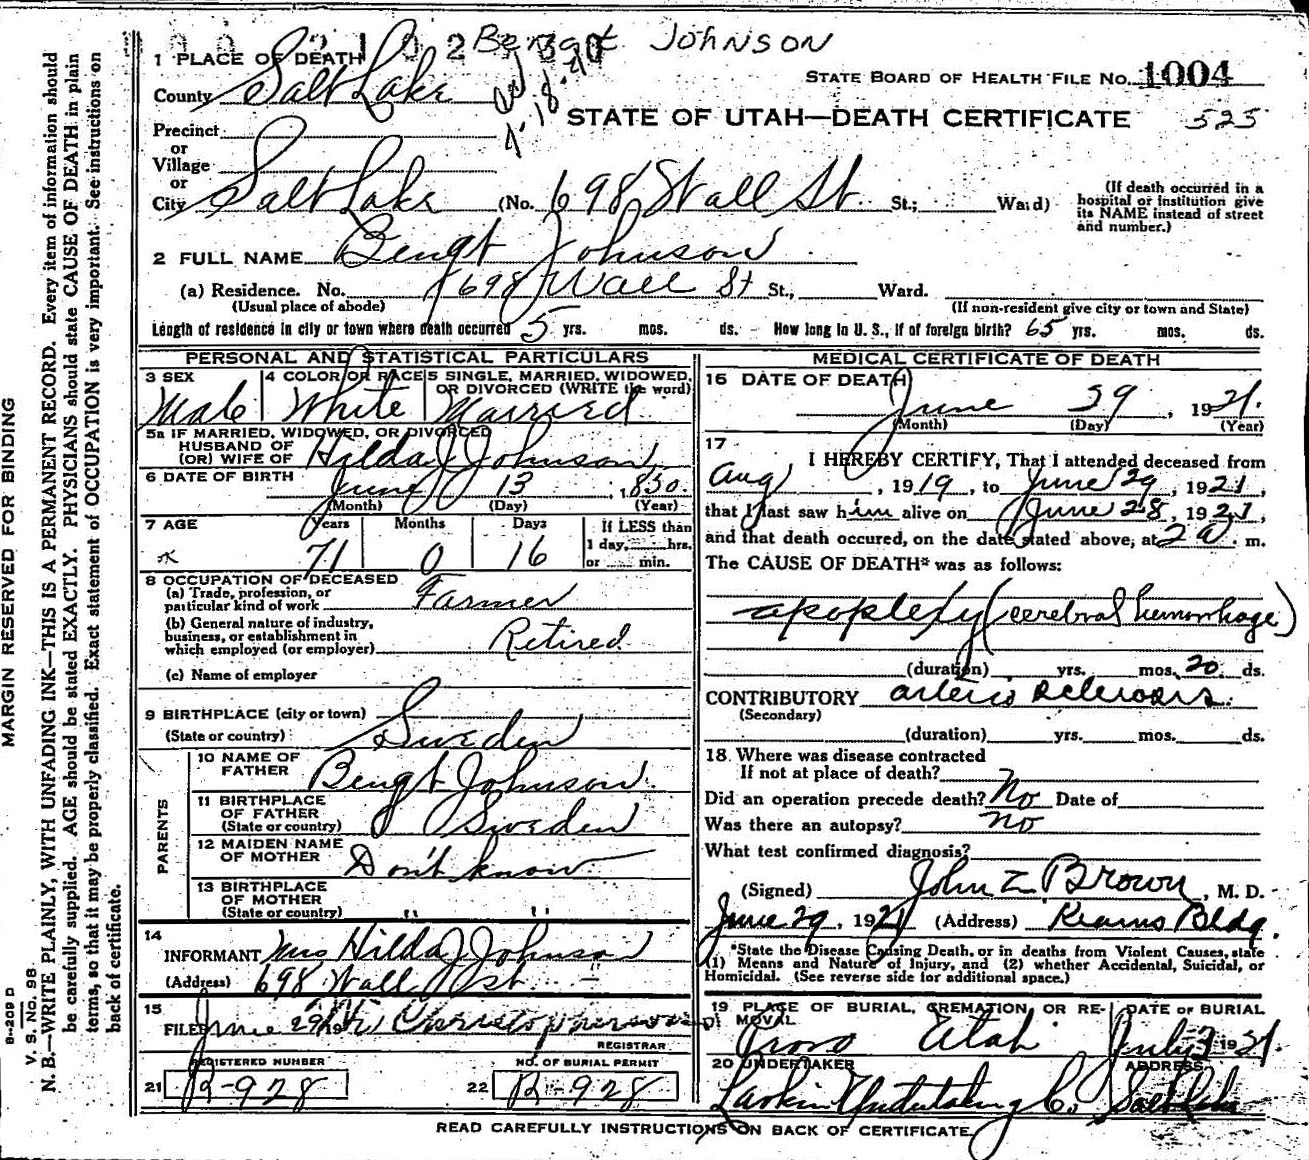 Bengt JOHNSON
1 PLACE OF DEATH
STATE BOARD OF HEALTH FILE No. 1004
County Salt Lake
STATE OF UTAH—DEATH CERTIFICATE 525
Precinct
or
Village
or
City Salt Lake (No. 698 Wall St. St.; Ward)
(If death occurred in a hospital or institution give its NAME instead of street and number.)
2 FULL NAME Bengt Johnson
(a) Residence. No. 698 Wall St St., Ward.
(Usual place of abode) (If non-resident give city or town and State)
Length of residence in city or town where death occurred 5 yrs. mos. ds. How long in U. S., if of foreign birth? 65 yrs. mos. ds.
PERSONAL AND STATISTICAL PARTICULARS
3 SEX 4 COLOR OR RACE 5 SINGLE, MARRIED, WIDOWED, OR DIVORCED (WRITE the word)
Male White Married
5a IF MARRIED, WIDOWED, OR DIVORCED
HUSBAND OF
(OR) WIFE OF Hilda J Johnson
6 DATE OF BIRTH June 13, 1850
(Month) (Day) (Year)
7 AGE Years Months Days If LESS than
1 day, hrs.
71 0 16 or min.
8 OCCUPATION OF DECEASED
(a) Trade, profession, or
particular kind of work Farmer
(b) General nature of industry,
business, or establishment in
which employed (or employer) Retired
(c) Name of employer
9 BIRTHPLACE (city or town)
(State or country) Sweden
PARENTS
10 NAME OF
FATHER Bengt Johnson
11 BIRTHPLACE
OF FATHER
(State or country) Sweden
12 MAIDEN NAME
OF MOTHER Don't know
13 BIRTHPLACE
OF MOTHER
(State or country) " "
14
INFORMANT Mrs Hilda J Johnson
(Address) 698 Wall st.
15
FILED June 29
REGISTRAR
REGISTERED NUMBER NO. OF BURIAL PERMIT
21 R-928 22 R-928
MEDICAL CERTIFICATE OF DEATH
16 DATE OF DEATH
June 29, 1921.
(Month) (Day) (Year)
17
I HEREBY CERTIFY, That I attended deceased from
Aug, 1919, to June 29, 1921,
that I last saw him alive on June 28, 1921,
and that death occured, on the date stated above, at 2 a. m.
The CAUSE OF DEATH* was as follows:
apoplexy (cerebral hemorrhage)
(duration) yrs. mos. 20 ds.
CONTRIBUTORY arterio sclerosis.
(Secondary)
(duration) yrs. mos. ds.
18. Where was disease contracted
If not at place of death?
Did an operation precede death? No Date of
Was there an autopsy? no
What test confirmed diagnosis?
(Signed) John Z Brown, M. D.
June 29, 1921 (Address) Kearns Bldg.
*State the Disease Causing Death, or in deaths from Violent Causes, state
(1) Means and Nature of Injury, and (2) whether Accidental, Suicidal, or
Homicidal. (See reverse side for additional space.)
19 PLACE OF BURIAL, CREMATION, OR RE-
MOVAL DATE OF BURIAL
Provo Utah July 3 1921.
20 UNDERTAKER ADDRESS
Larkin Undertaking Co. Salt Lake
READ CAREFULLY INSTRUCTIONS ON BACK OF CERTIFICATE
MARGIN RESERVED FOR BINDING
B-209 D
V. S. No. 98
N. B.—WRITE PLAINLY, WITH UNFADING INK—THIS IS A PERMANENT RECORD. Every item of information should
be carefully supplied. AGE should be stated EXACTLY. PHYSICIANS should state CAUSE OF DEATH in plain
terms, so that it may be properly classified. Exact statement of OCCUPATION is very important. See instructions on
back of certificate.